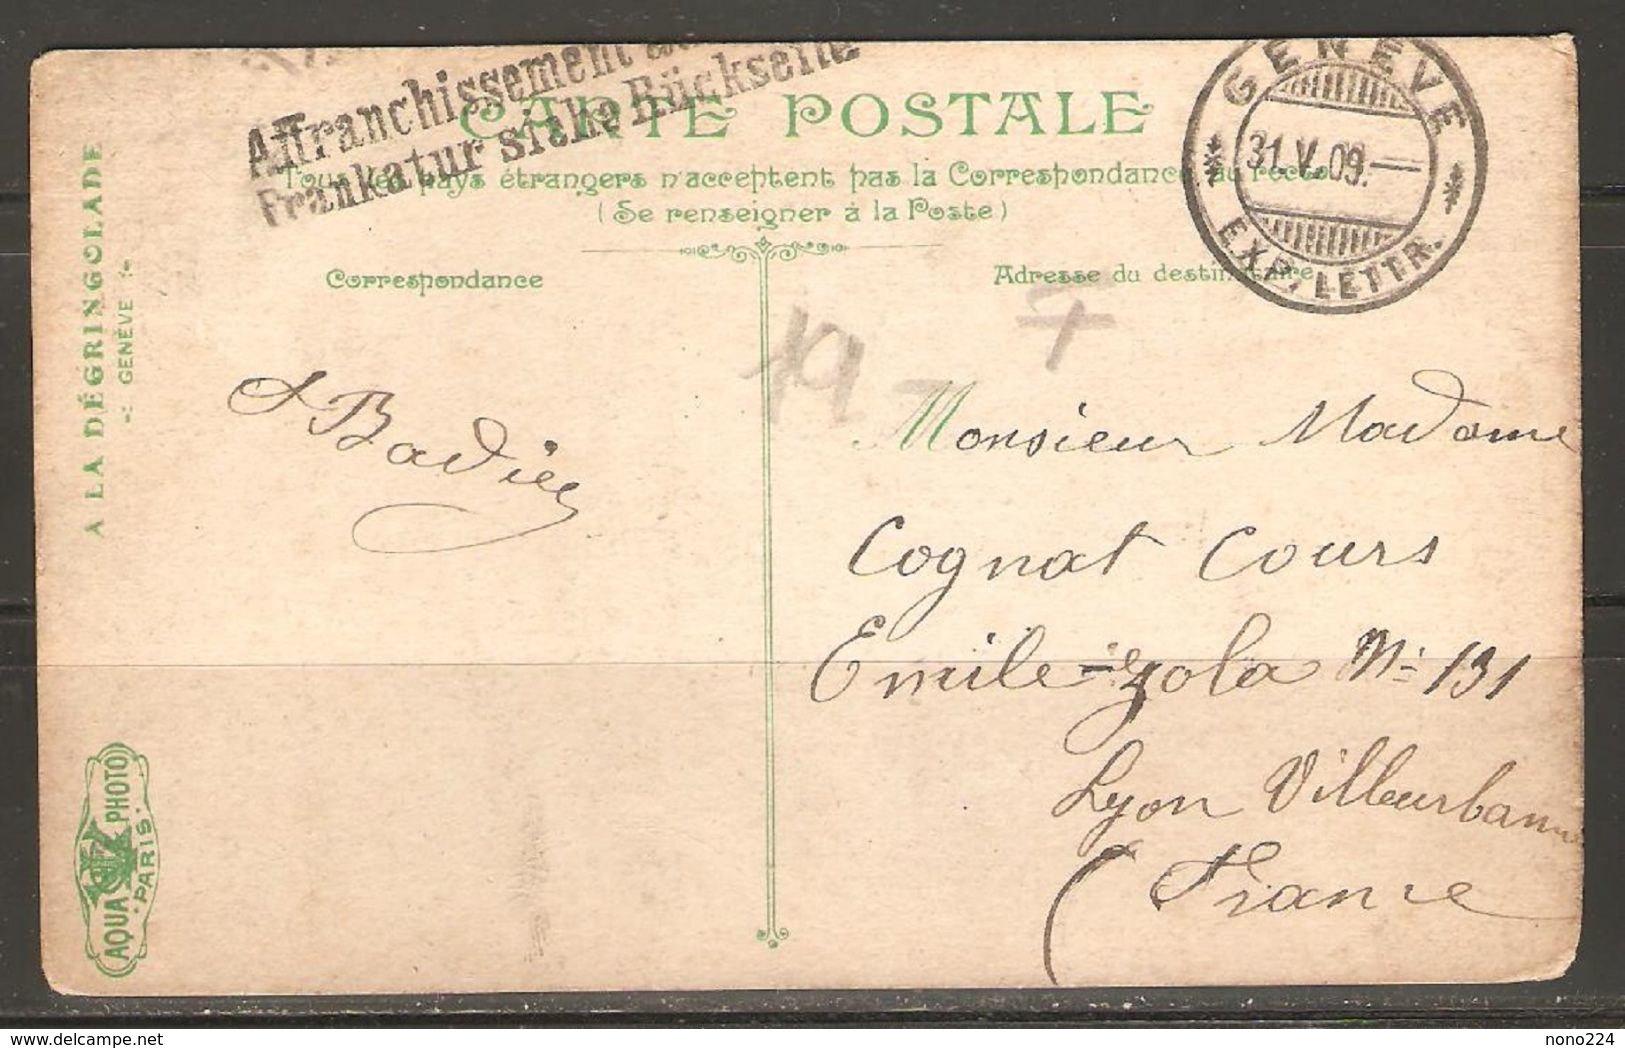 Affranchissement au
Frankatur siehe Rückseite
CARTE POSTALE
Tous les pays étrangers n'acceptent pas la Correspondance au recto
(Se renseigner à la Poste)
GENÈVE
31.V.09.
EXP. LETTR.
Correspondance
Adresse du destinataire
A LA DÉGRINGOLADE
GENÈVE
Badier
Monsieur Madame
Cognat Cours
Emile-zola N: 131
Lyon Villeurbanne
(France
AQUA PHOTO
PARIS
delcampe.net
nono224